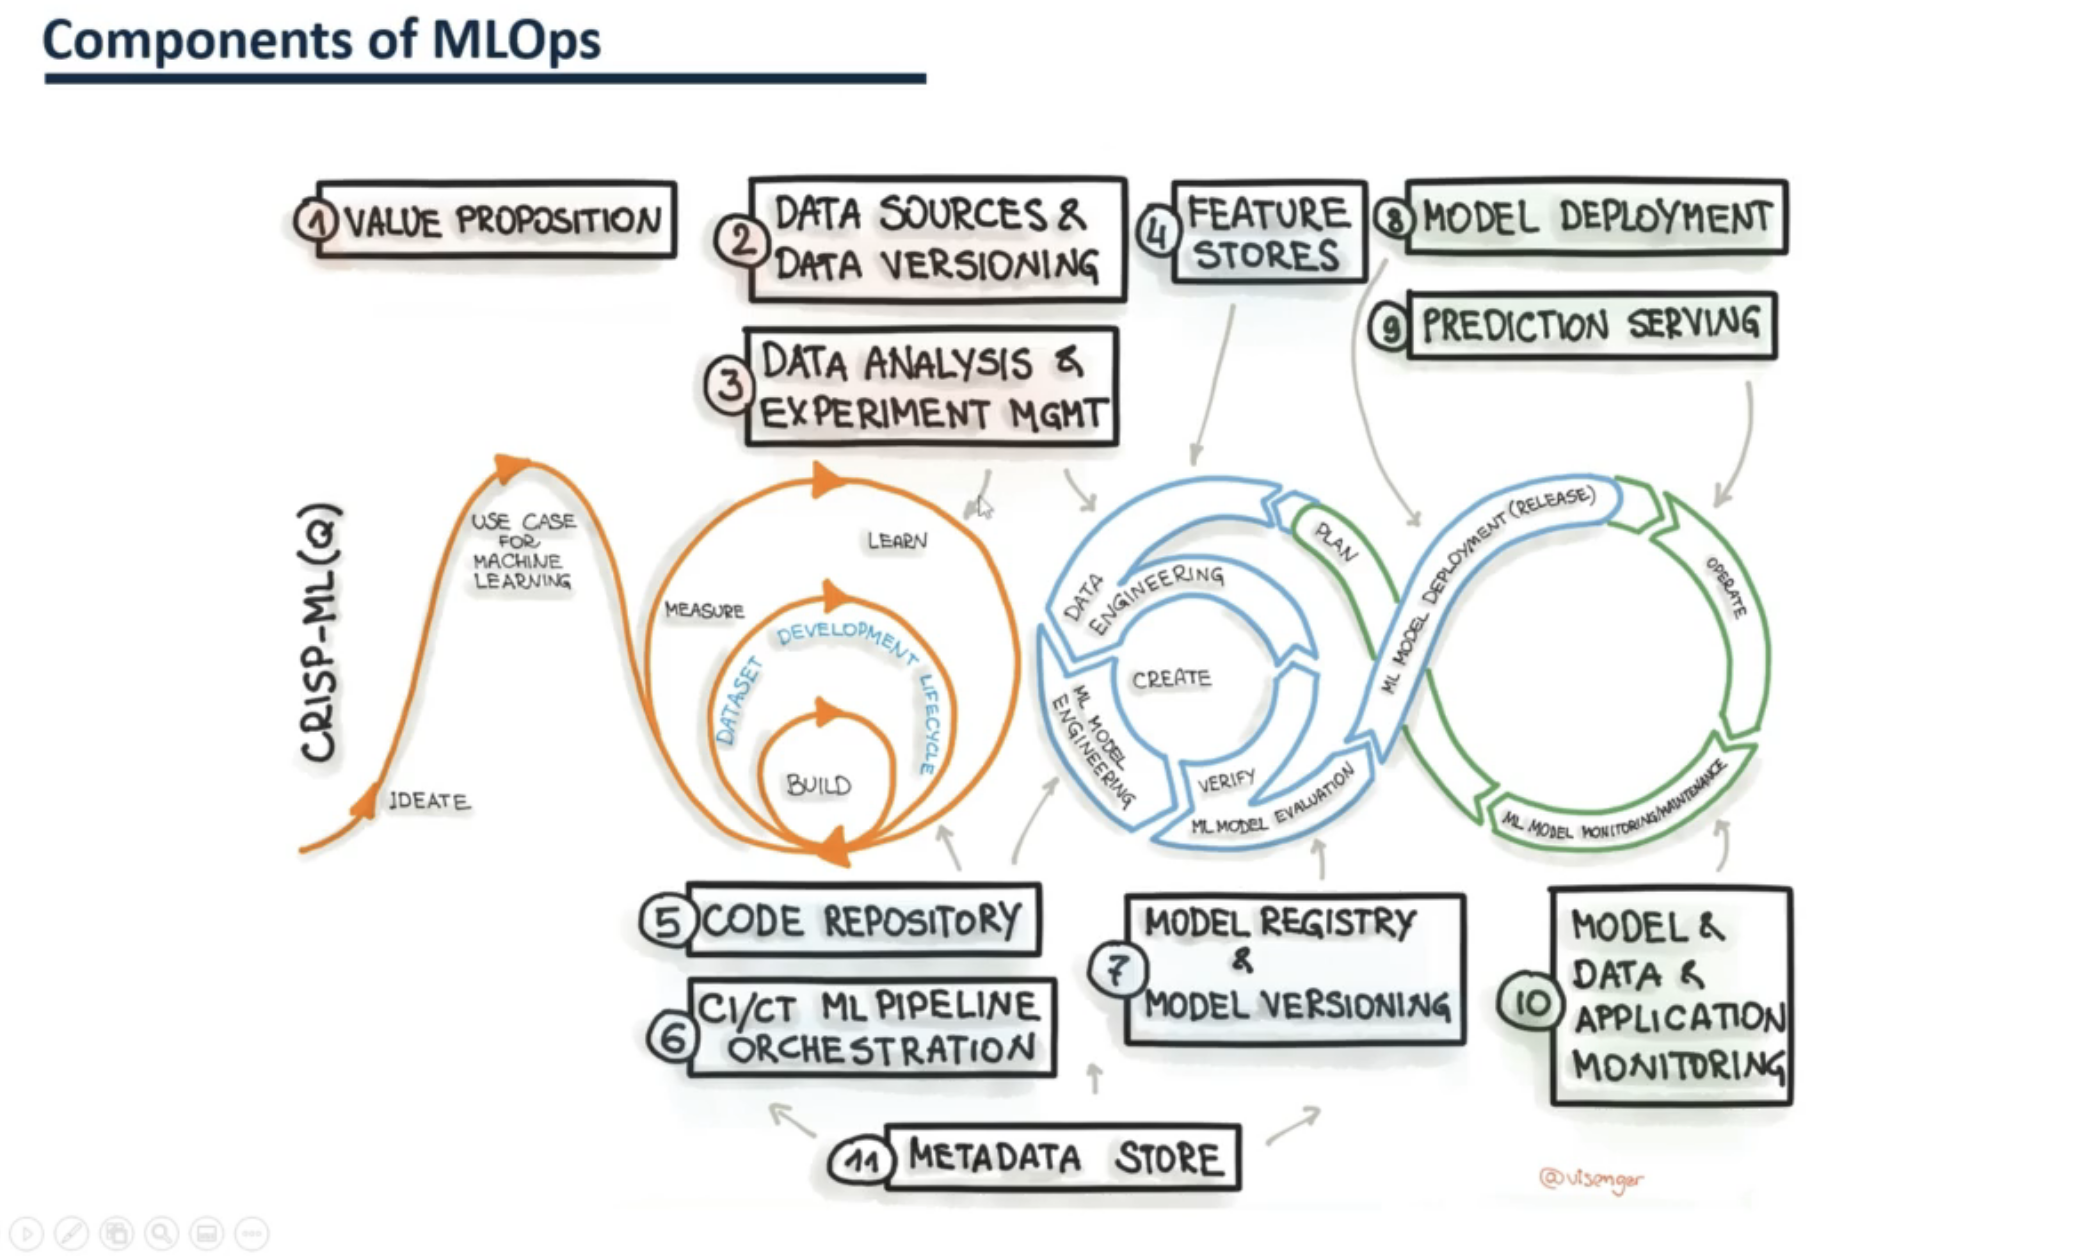 Components of MLOps
1 VALUE PROPOSITION
2 DATA SOURCES &
DATA VERSIONING
3 DATA ANALYSIS &
EXPERIMENT MGMT
4 FEATURE
STORES
8 MODEL DEPLOYMENT
9 PREDICTION SERVING
CRISP-ML(Q)
IDEATE
USE CASE
FOR
MACHINE
LEARNING
MEASURE
LEARN
DATASET DEVELOPMENT LIFECYCLE
BUILD
DATA
ENGINEERING
CREATE
ML MODEL
ENGINEERING
VERIFY
ML MODEL EVALUATION
PLAN
ML MODEL DEPLOYMENT (RELEASE)
OPERATE
ML MODEL MONITORING/MAINTENANCE
5 CODE REPOSITORY
6 CI/CT ML PIPELINE
ORCHESTRATION
7 MODEL REGISTRY
&
MODEL VERSIONING
10 MODEL &
DATA &
APPLICATION
MONITORING
11 METADATA STORE
@visenger